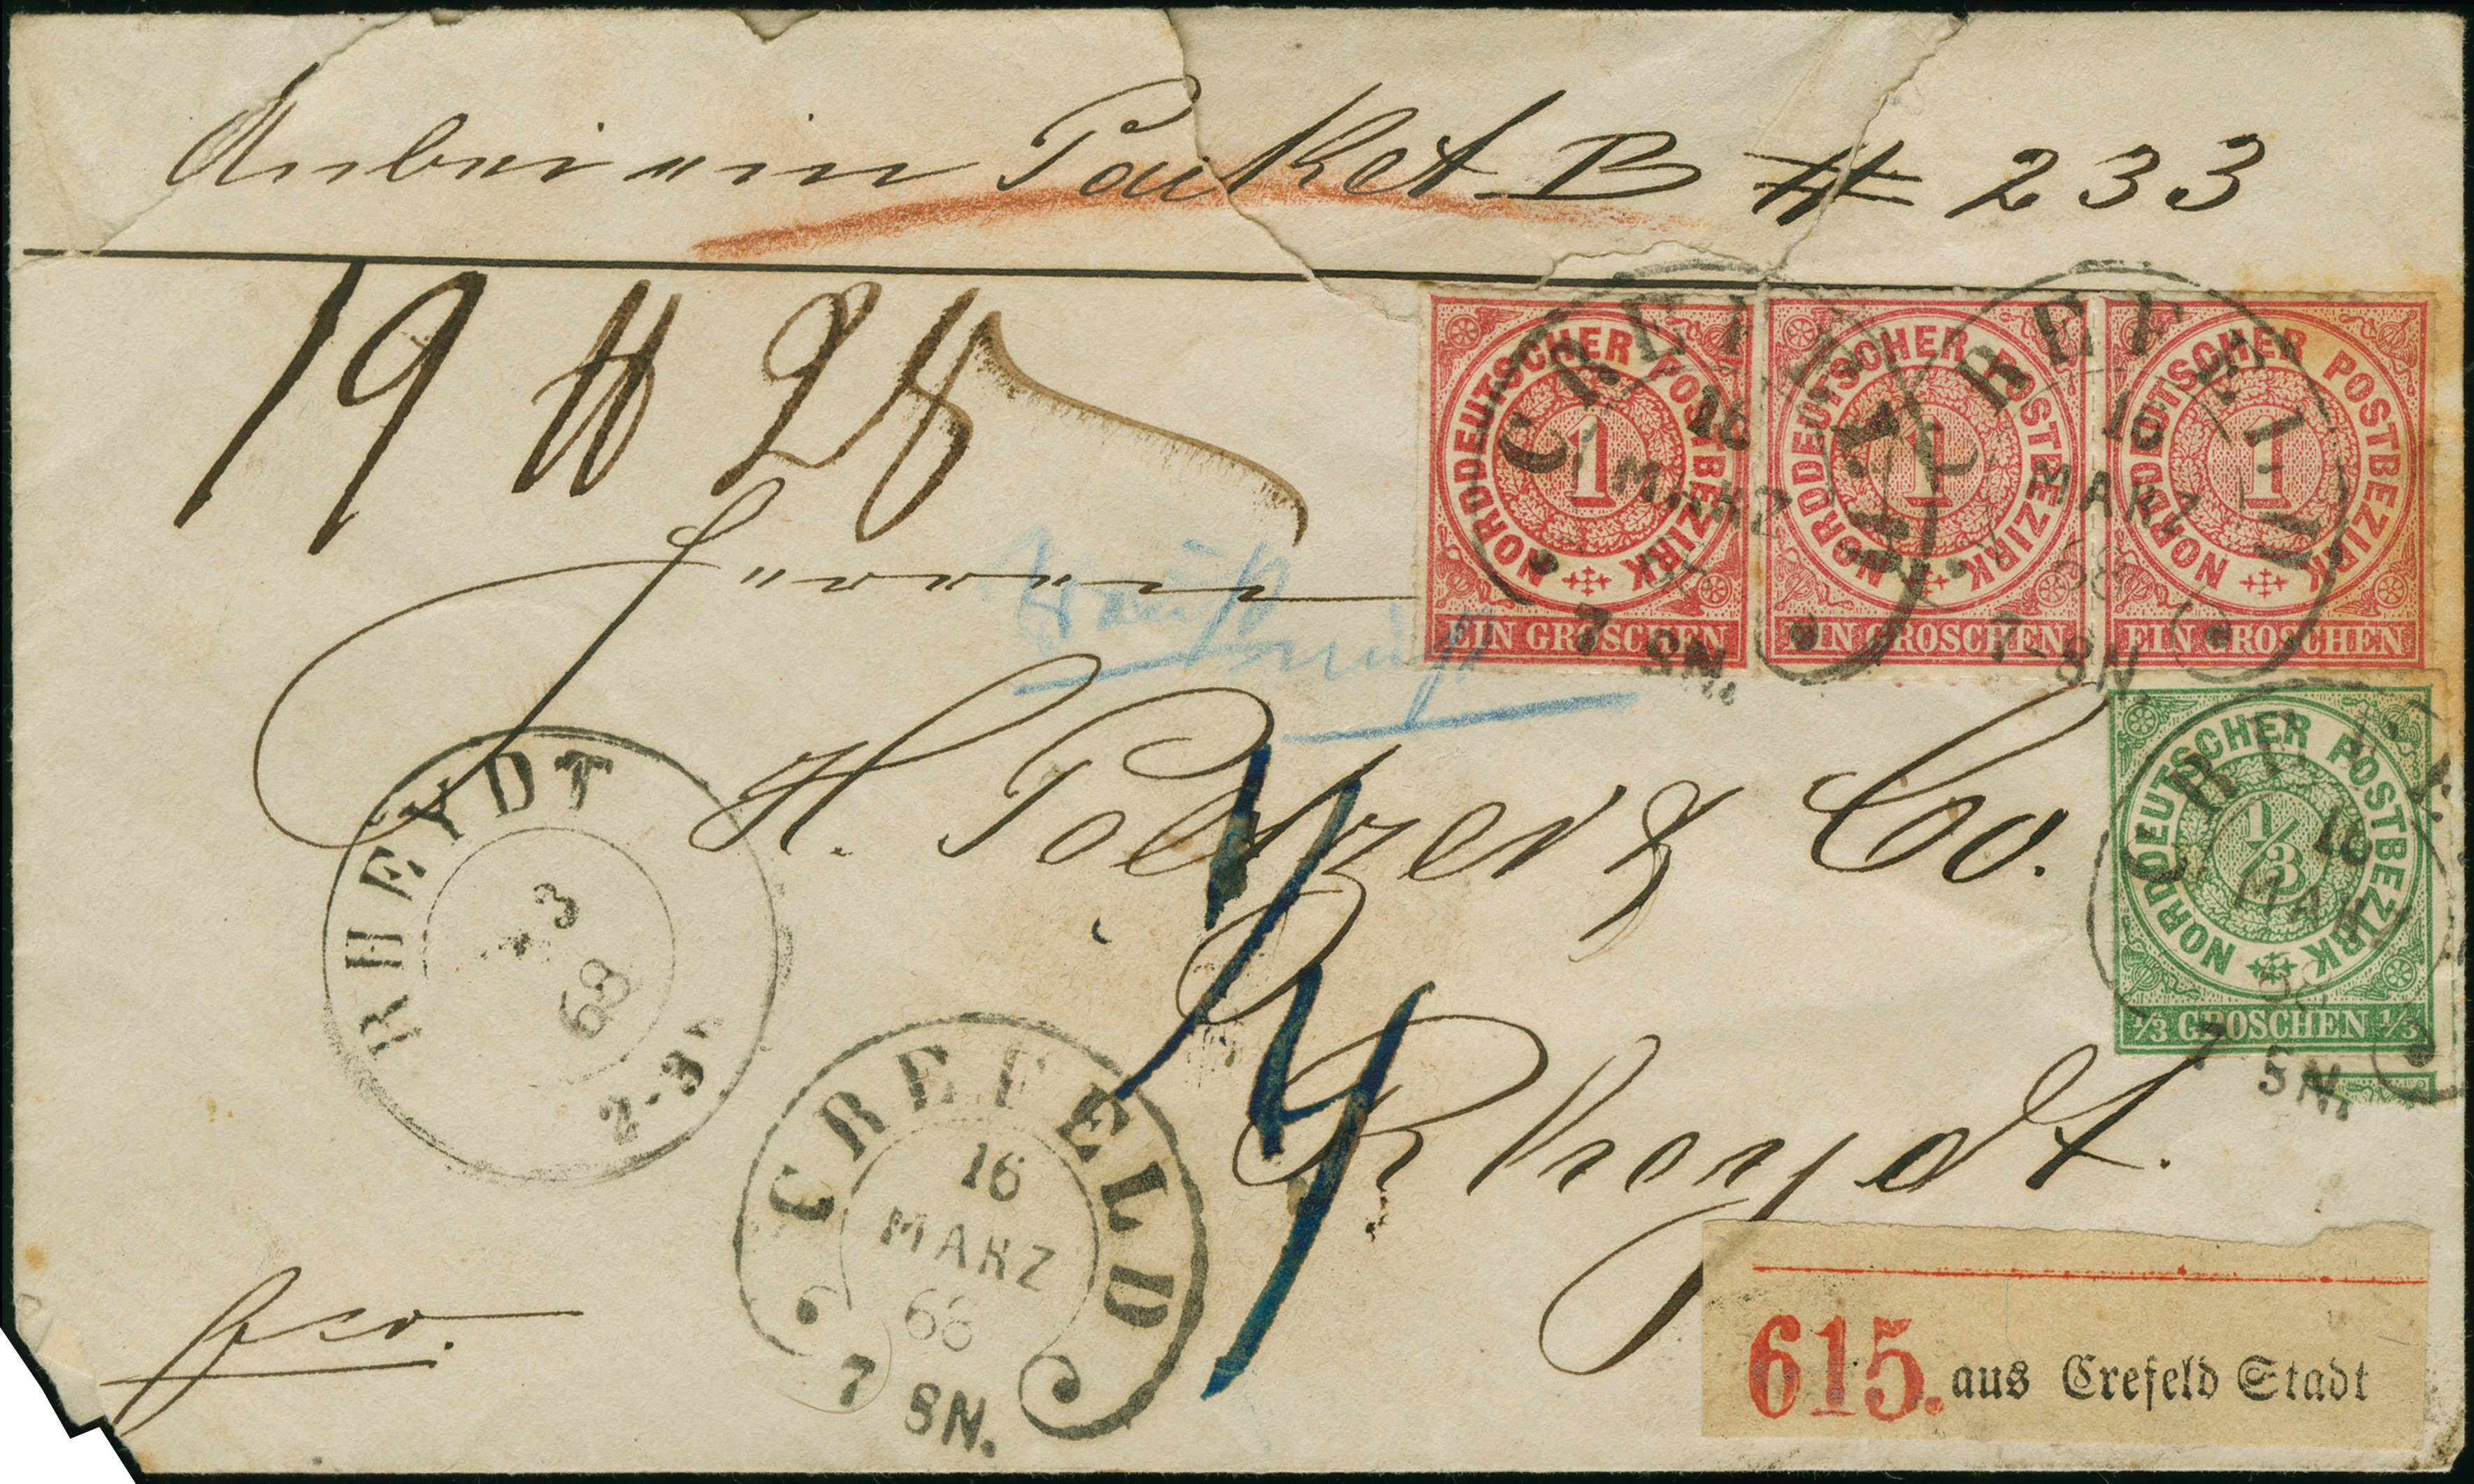 Anbei ein Packet B # 233
19 ℔ 28
Herren
H. Peltzer & Co.
Rheydt.
fco.
NORDDEUTSCHER POSTBEZIRK
1
EIN GROSCHEN
NORDDEUTSCHER POSTBEZIRK
1
EIN GROSCHEN
NORDDEUTSCHER POSTBEZIRK
1
EIN GROSCHEN
NORDDEUTSCHER POSTBEZIRK
1/3
1/3 GROSCHEN 1/3
CREFELD
16
MARZ
7 8N.
CREFELD
16
MARZ
68
7-8N.
CREFELD
16
MARZ
68
7 8N.
RHEYDT
3
68
2-3
CREFELD
16
MARZ
68
7 8N.
615. aus Crefeld Stadt